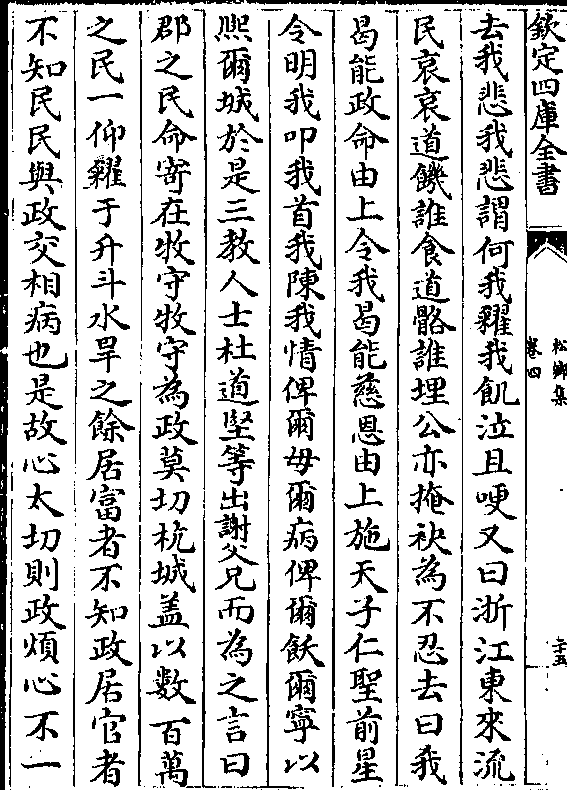 欽定四庫全書
松鄉集
卷四
二十五
去我悲我悲謂何我糴我飢泣且哽又曰浙江東來流
民哀哀道饑誰食道骼誰埋公亦掩袂為不忍去曰我
曷能政命由上令我曷能慈恩由上施天子仁聖前星
令明我叩我首我陳我情俾爾毋爾病俾爾飫爾寧以
熙爾城於是三教人士杜道堅等出謝父兄而為之言曰
郡之民命寄在牧守牧守為政莫切杭城盖以數百萬
之民一仰糴于升斗水旱之餘居富者不知政居官者
不知民民與政交相病也是故心太切則政煩心不一